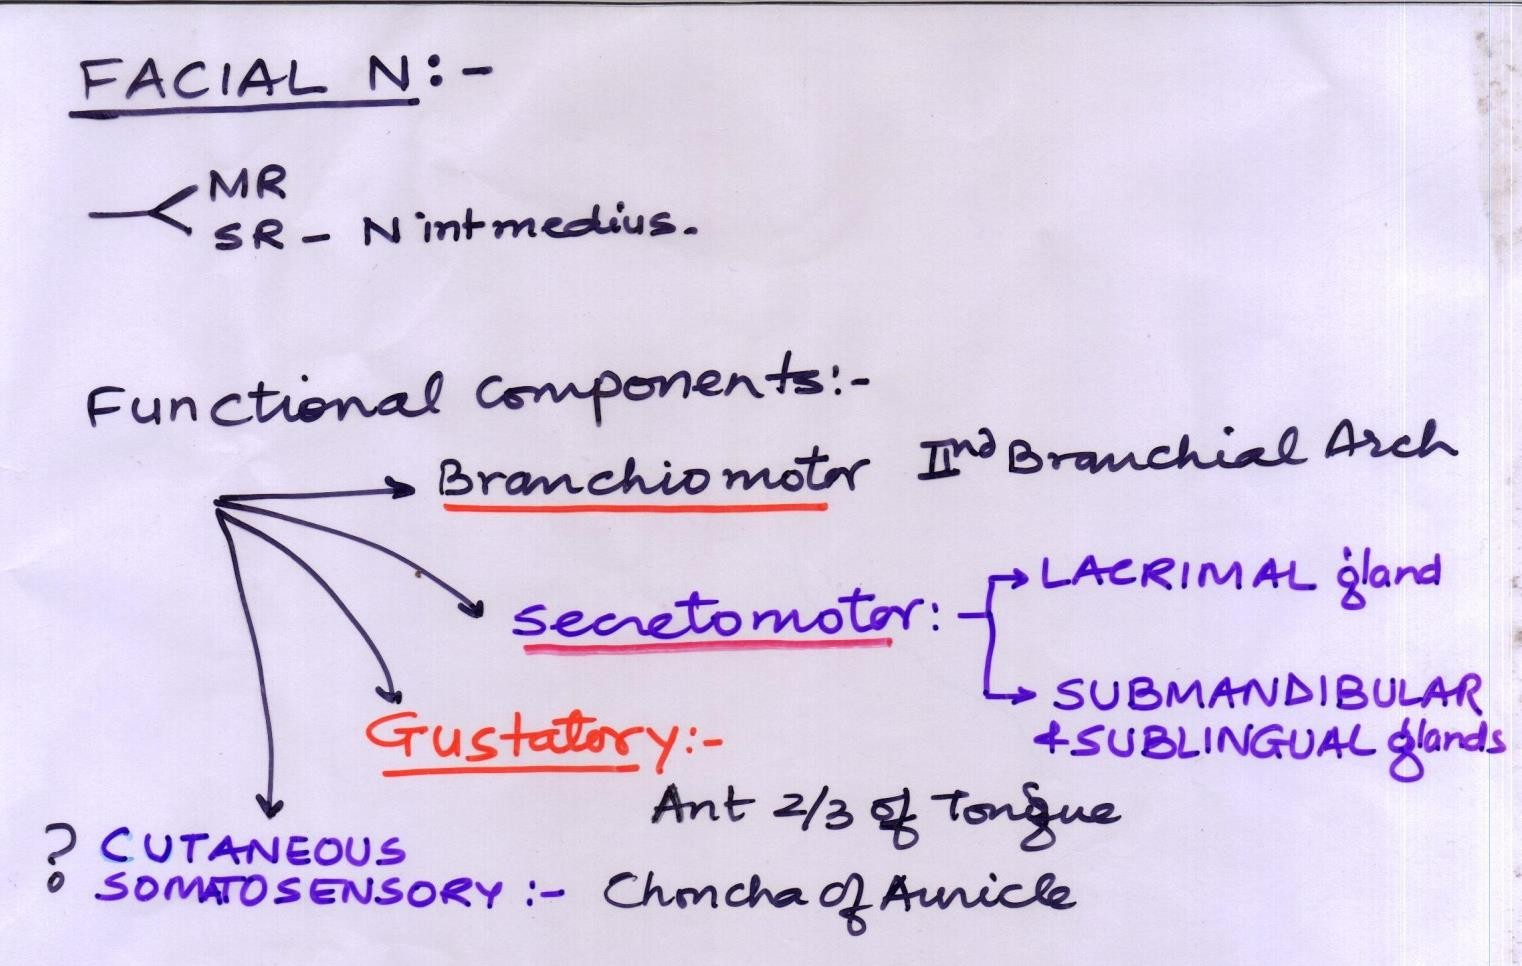 FACIAL N:-
MR
SR - N intmedius.
Functional Components:-
Branchiomotor IInd Branchial Arch
Secretomotor:-
LACRIMAL gland
SUBMANDIBULAR
+SUBLINGUAL glands
Gustatory:-
Ant 2/3 of Tongue
? CUTANEOUS
SOMATOSENSORY :- Choncha of Auricle